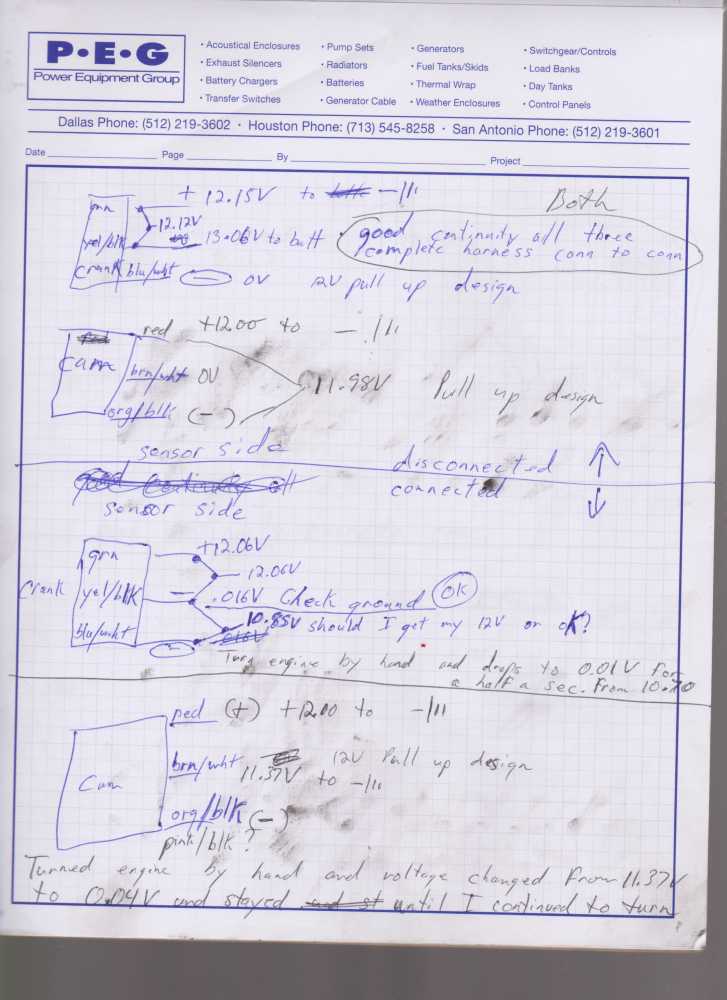 P•E•G
Power Equipment Group
• Acoustical Enclosures
• Exhaust Silencers
• Battery Chargers
• Transfer Switches
• Pump Sets
• Radiators
• Batteries
• Generator Cable
• Generators
• Fuel Tanks/Skids
• Thermal Wrap
• Weather Enclosures
• Switchgear/Controls
• Load Banks
• Day Tanks
• Control Panels
Dallas Phone: (512) 219-3602 • Houston Phone: (713) 545-8258 • San Antonio Phone: (512) 219-3601
Date Page By Project
+ 12.15V to
Both
12.12V
yel/blk 13.06V to batt
good continuity all three
complete harness conn to conn
crank blu/wht (-) 0V 12V pull up design
red +12.00 to
Cam
brn/wht 0V 11.98V Pull up design
org/blk (-)
sensor side
disconnected ↑
connected ↓
sensor side
grn +12.06V
12.06V
Crank yel/blk - .016V Check ground OK
blu/wht 10.85V should I get my 12V or ok?
Turn engine by hand and drops to 0.01V for
a half a sec. From 10.70
red (+) +12.00 to
Cam brn/wht 12V Pull up design
11.37V to
org/blk (-)
pink/blk?
Turned engine by hand and voltage changed from 11.37V
to 0.04V and stayed until I continued to turn